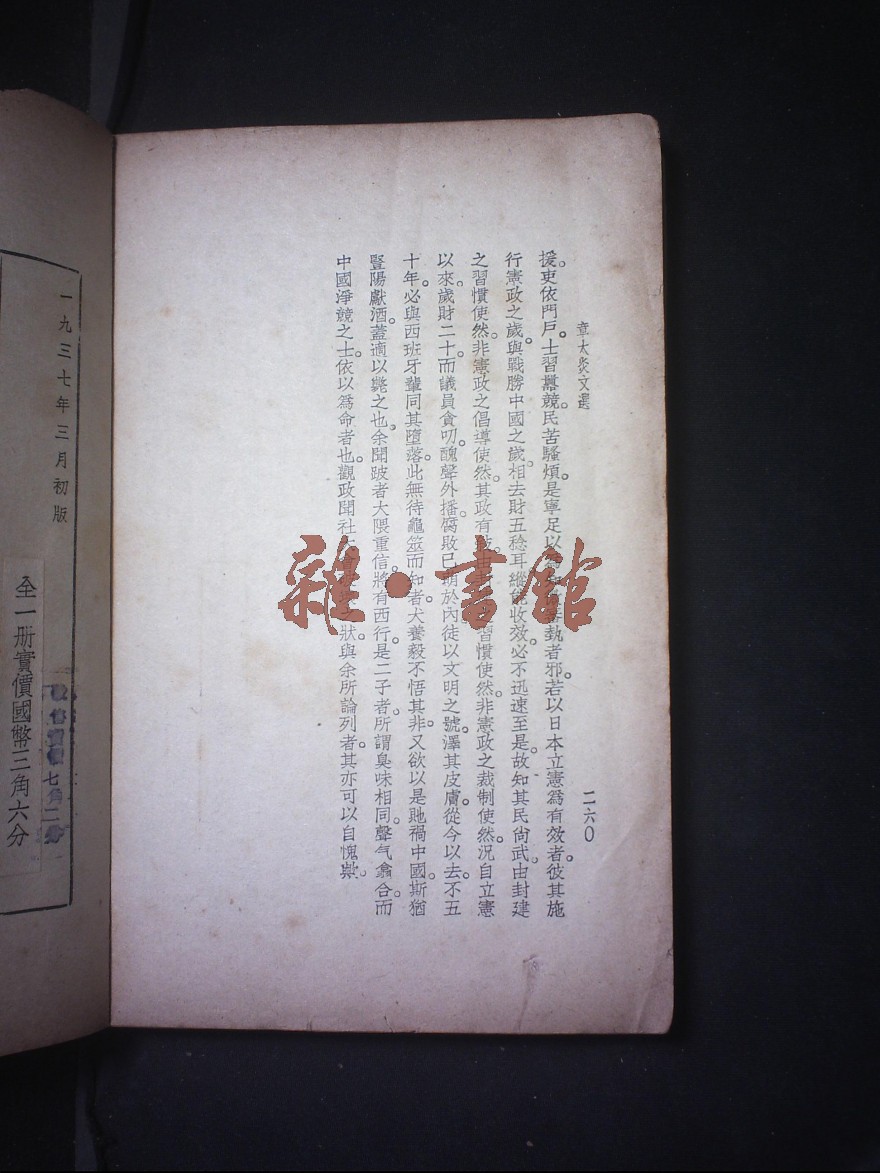 章太炎文選
二六〇
援。吏依門戶。士習囂競。民苦騷煩。是寧足以執者邪。若以日本立憲爲有效者。彼其施
行憲政之歲。與戰勝中國之歲。相去財五稔耳。縱能收效。必不迅速至是。故知其民尙武。由封建
之習慣使然。非憲政之倡導使然。其政有習慣使然。非憲政之裁制使然。況自立憲
以來。歲財二十。而議員貪叨。醜聲外播。腐敗已萌於內。徒以文明之號。澤其皮膚。從今以去。不五
十年。必與西班牙輩同其墮落。此無待龜筮而知者。犬養毅不悟其非。又欲以是貤禍中國。斯猶
豎陽獻酒。蓋適以斃之也。余聞跛者大隈重信將有西行。是二子者。所謂臭味相同。聲气翕合。而
中國淨競之士。依以爲命者也。觀政聞社狀。與余所論列者。其亦可以自愧歟。
雜·書館
一九三七年三月初版
全一册實價國幣三角六分
七角二分